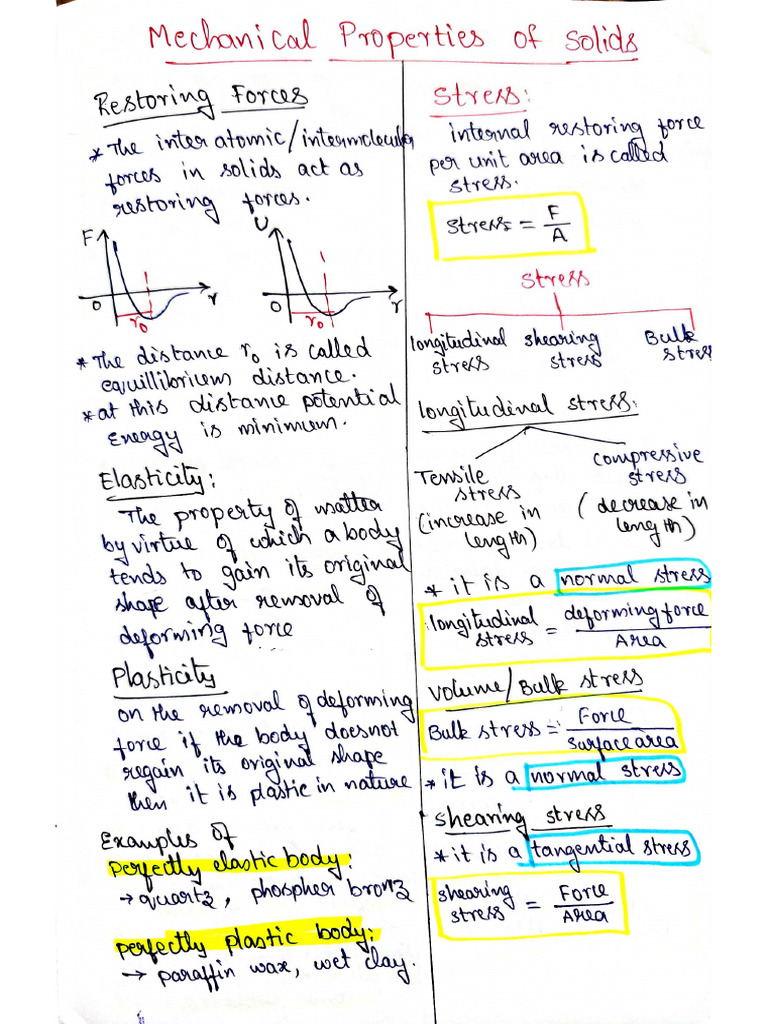 Mechanical Properties of Solids
Restoring Forces
* The inter atomic/intermolecular
forces in solids act as
restoring forces.
F
0
r
r₀
U
0
r
r₀
* The distance r₀ is called
equillibrium distance.
* at this distance potential
Energy is minimum.
Elasticity:
The property of matter
by virtue of which a body
tends to gain its original
shape after removal of
deforming force
Plasticity
on the removal of deforming
force if the body doesnot
regain its original shape
then it is plastic in nature
Examples of
perfectly elastic body:
→ quartz, phospher bronz
perfectly plastic body:
→ paraffin wax, wet clay.
Stress:
internal restoring force
per unit area is called
stress.
Stress = F/A
Stress
longitudinal stress
shearing stress
Bulk stress
longitudinal stress:
Tensile stress
(increase in length)
compressive stress
(decrease in length)
* it is a normal stress
longitudinal stress = deforming force/Area
Volume/Bulk stress
Bulk stress = Force/surface area
* it is a normal stress
shearing stress
* it is a tangential stress
shearing stress = Force/Area